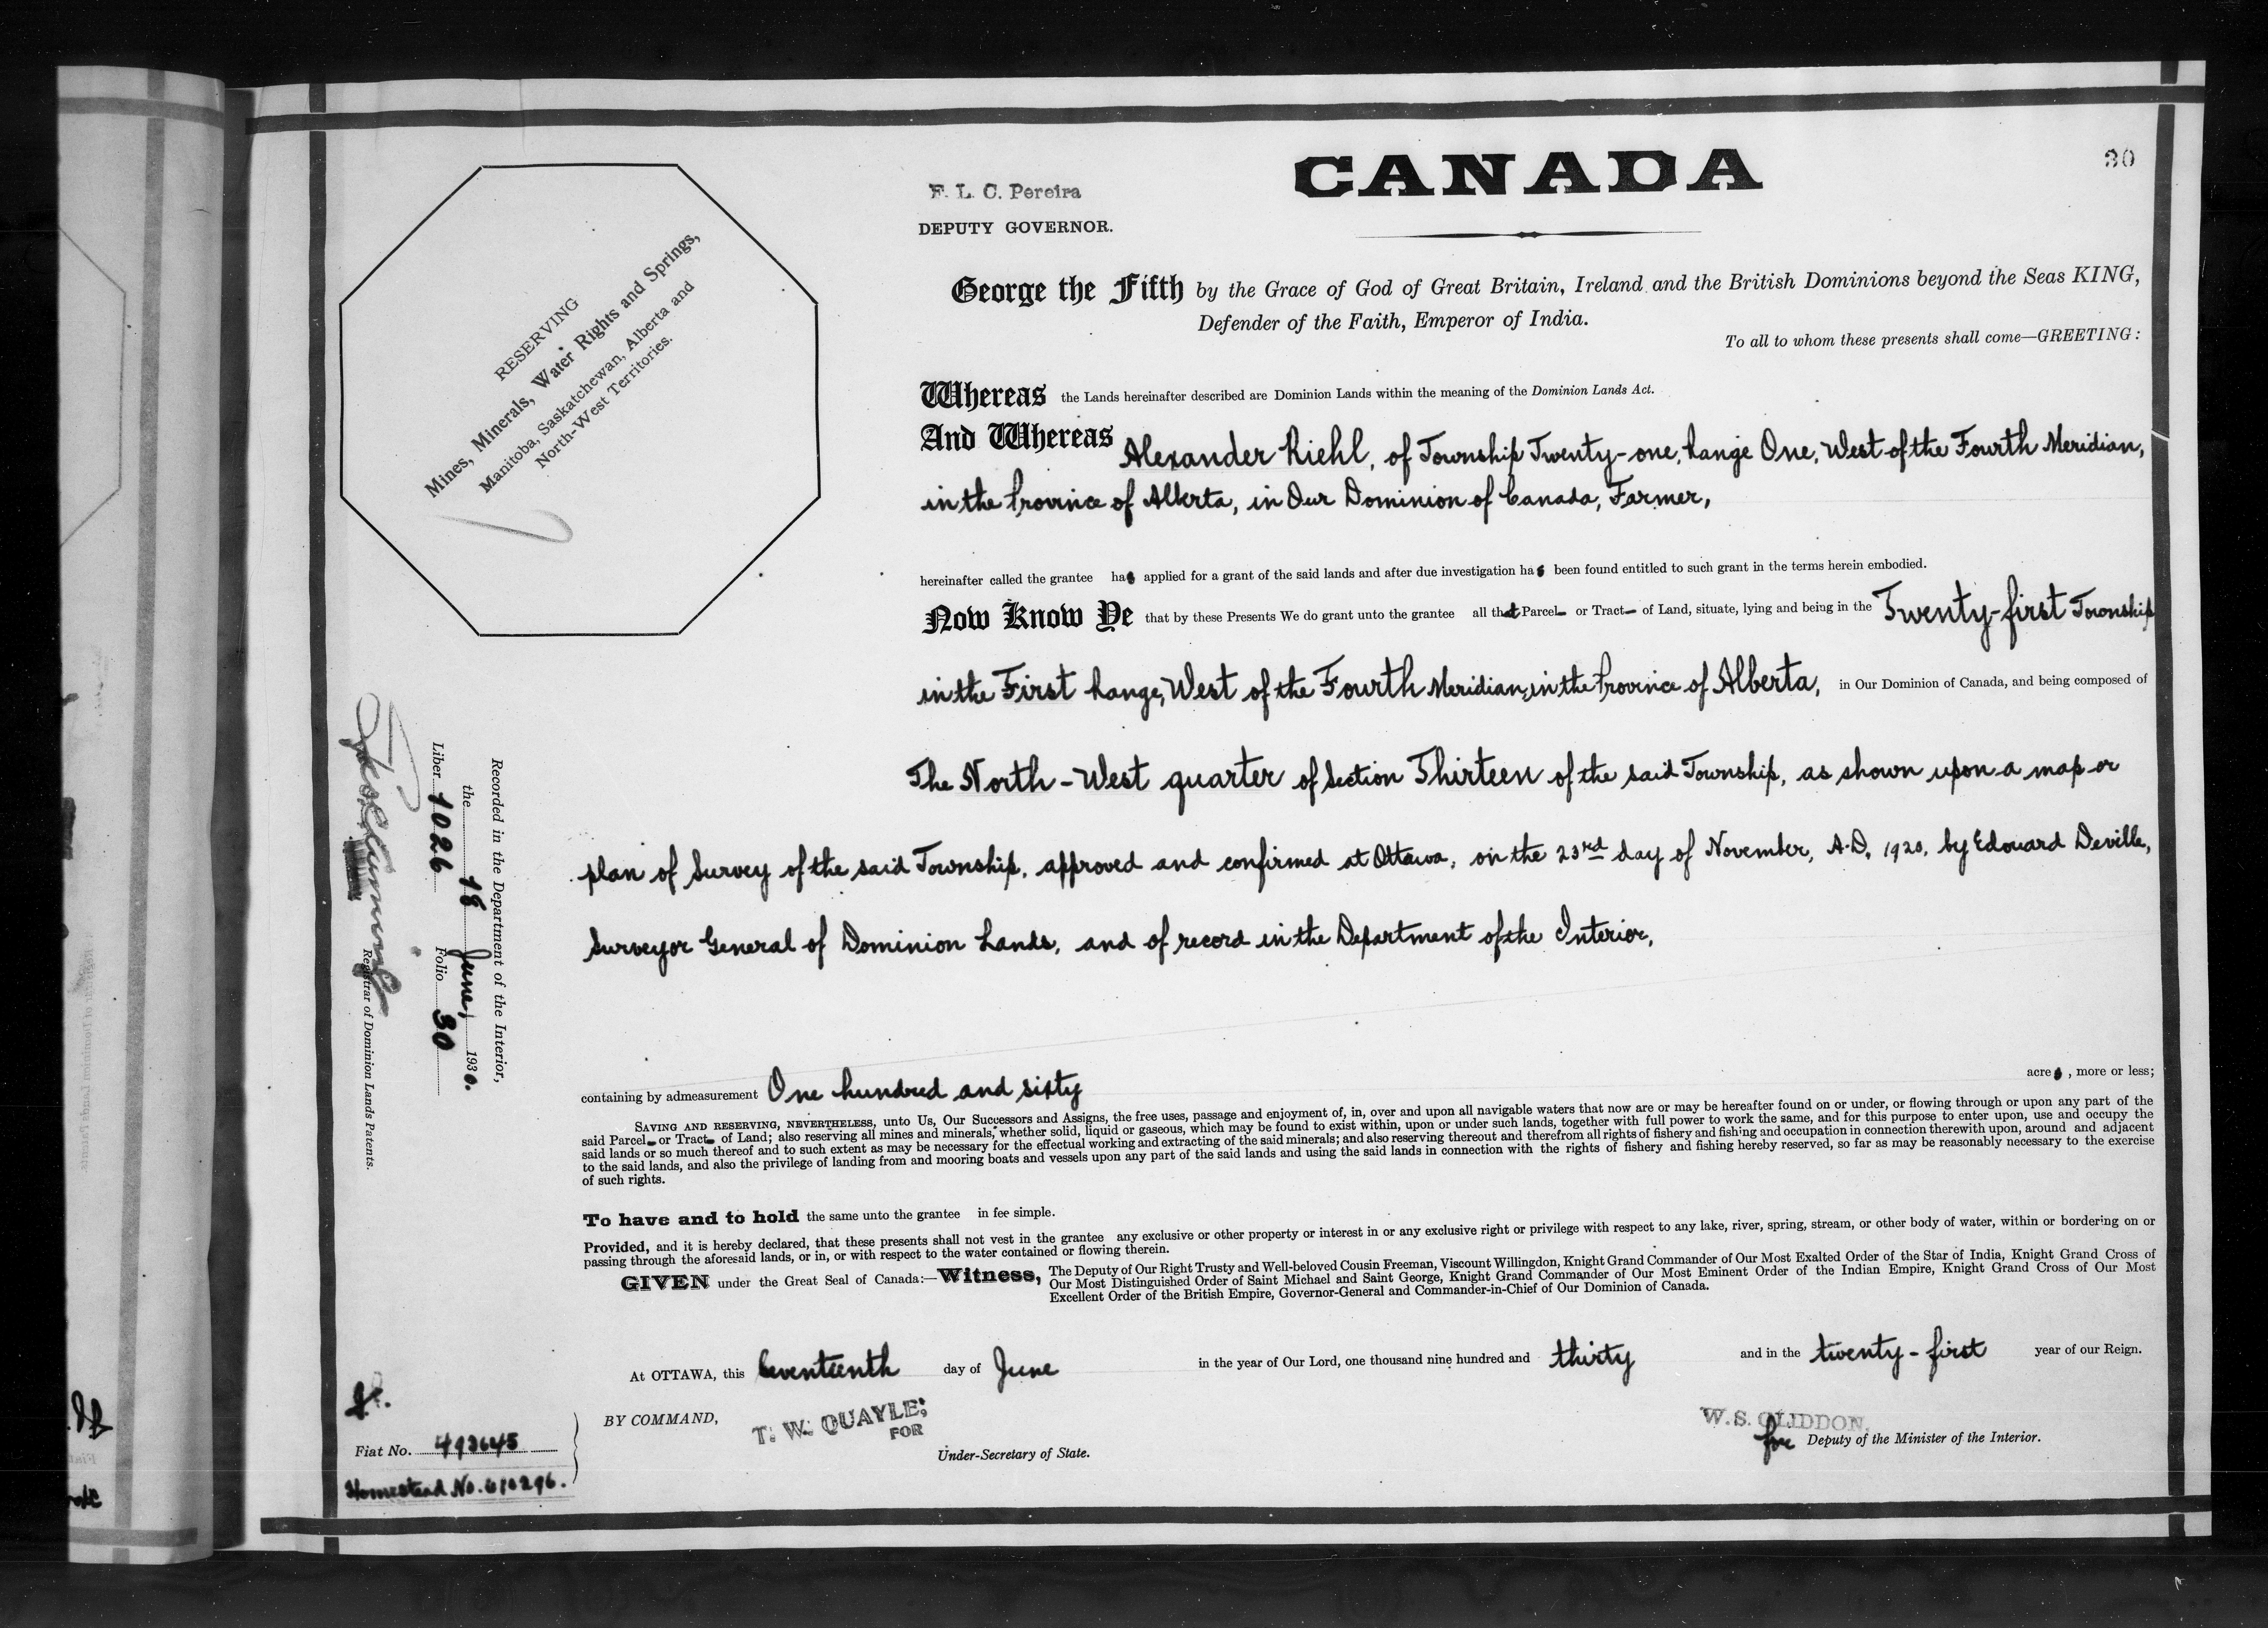 30
CANADA
F. L. C. Pereira
DEPUTY GOVERNOR.
George the Fifth by the Grace of God of Great Britain, Ireland and the British Dominions beyond the Seas KING,
Defender of the Faith, Emperor of India.
To all to whom these presents shall come—GREETING:
RESERVING
Mines, Minerals, Water Rights and Springs,
Manitoba, Saskatchewan, Alberta and
North-West Territories.
Whereas the Lands hereinafter described are Dominion Lands within the meaning of the Dominion Lands Act.
And Whereas Alexander Riehl, of Township Twenty-one, Range One, West of the Fourth Meridian,
in the Province of Alberta, in Our Dominion of Canada, Farmer,
hereinafter called the grantee has applied for a grant of the said lands and after due investigation has been found entitled to such grant in the terms herein embodied.
Now Know Ye that by these Presents We do grant unto the grantee all that Parcel or Tract of Land, situate, lying and being in the Twenty-first Township
in the First Range, West of the Fourth Meridian, in the Province of Alberta, in Our Dominion of Canada, and being composed of
The North-West quarter of Section Thirteen of the said Township, as shown upon a map or
plan of Survey of the said Township, approved and confirmed at Ottawa, on the 23rd day of November, A.D. 1920, by Edouard Deville,
Surveyor General of Dominion Lands, and of record in the Department of the Interior,
containing by admeasurement One hundred and sixty acres, more or less;
SAVING AND RESERVING, NEVERTHELESS, unto Us, Our Successors and Assigns, the free uses, passage and enjoyment of, in, over and upon all navigable waters that now are or may be hereafter found on or under, or flowing through or upon any part of the
said Parcel or Tract of Land; also reserving all mines and minerals, whether solid, liquid or gaseous, which may be found to exist within, upon or under such lands, together with full power to work the same, and for this purpose to enter upon, use and occupy the
said lands or so much thereof and to such extent as may be necessary for the effectual working and extracting of the said minerals; and also reserving thereout and therefrom all rights of fishery and fishing and occupation in connection therewith upon, around and adjacent
to the said lands, and also the privilege of landing from and mooring boats and vessels upon any part of the said lands and using the said lands in connection with the rights of fishery and fishing hereby reserved, so far as may be reasonably necessary to the exercise
of such rights.
To have and to hold the same unto the grantee in fee simple.
Provided, and it is hereby declared, that these presents shall not vest in the grantee any exclusive or other property or interest in or any exclusive right or privilege with respect to any lake, river, spring, stream, or other body of water, within or bordering on or
passing through the aforesaid lands, or in, or with respect to the water contained or flowing therein.
GIVEN under the Great Seal of Canada:—Witness, The Deputy of Our Right Trusty and Well-beloved Cousin Freeman, Viscount Willingdon, Knight Grand Commander of Our Most Exalted Order of the Star of India, Knight Grand Cross of
Our Most Distinguished Order of Saint Michael and Saint George, Knight Grand Commander of Our Most Eminent Order of the Indian Empire, Knight Grand Cross of Our Most
Excellent Order of the British Empire, Governor-General and Commander-in-Chief of Our Dominion of Canada.
At OTTAWA, this Seventeenth day of June in the year of Our Lord, one thousand nine hundred and thirty and in the twenty-first year of our Reign.
BY COMMAND,
T. W. QUAYLE,
FOR
Under-Secretary of State.
W. S. GLIDDON,
for Deputy of the Minister of the Interior.
Recorded in the Department of the Interior,
the 18 June, 1930.
Liber 1026 Folio 30
Registrar of Dominion Lands Patents.
Fiat No. 493645
Homestead No. 610296.